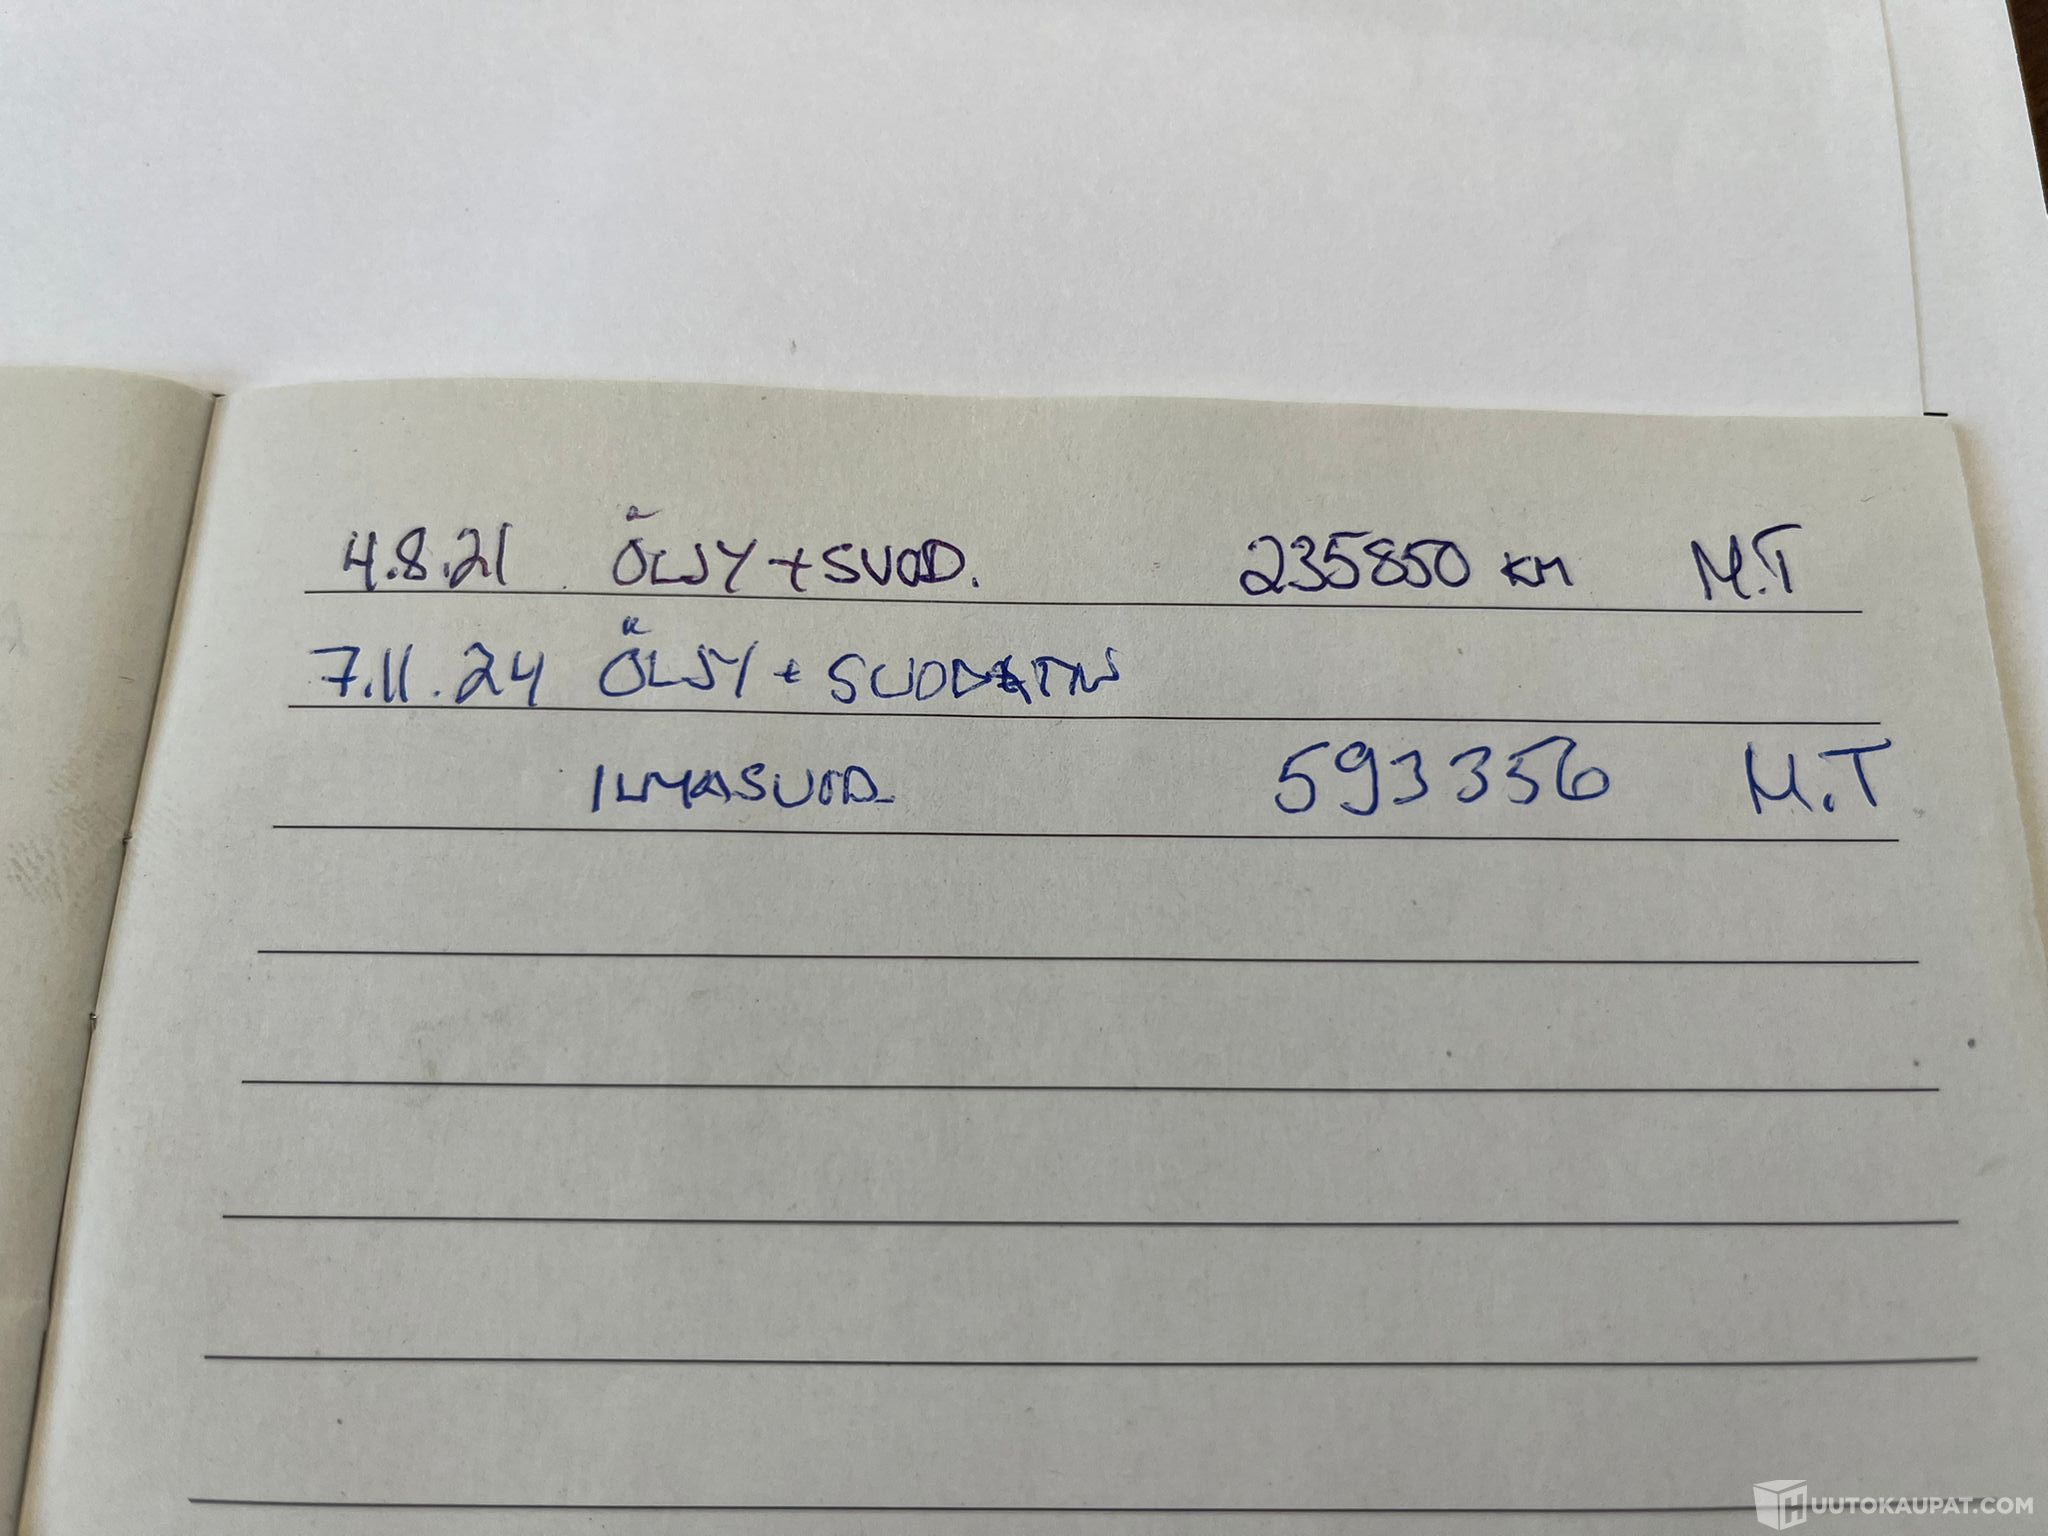 4.8.21 ÖLJY + SUOD. 235850 KM M.T
7.11.24 ÖLJY + SUODATIN
ILMASUOD. 593356 M.T
HUUTOKAUPAT.COM